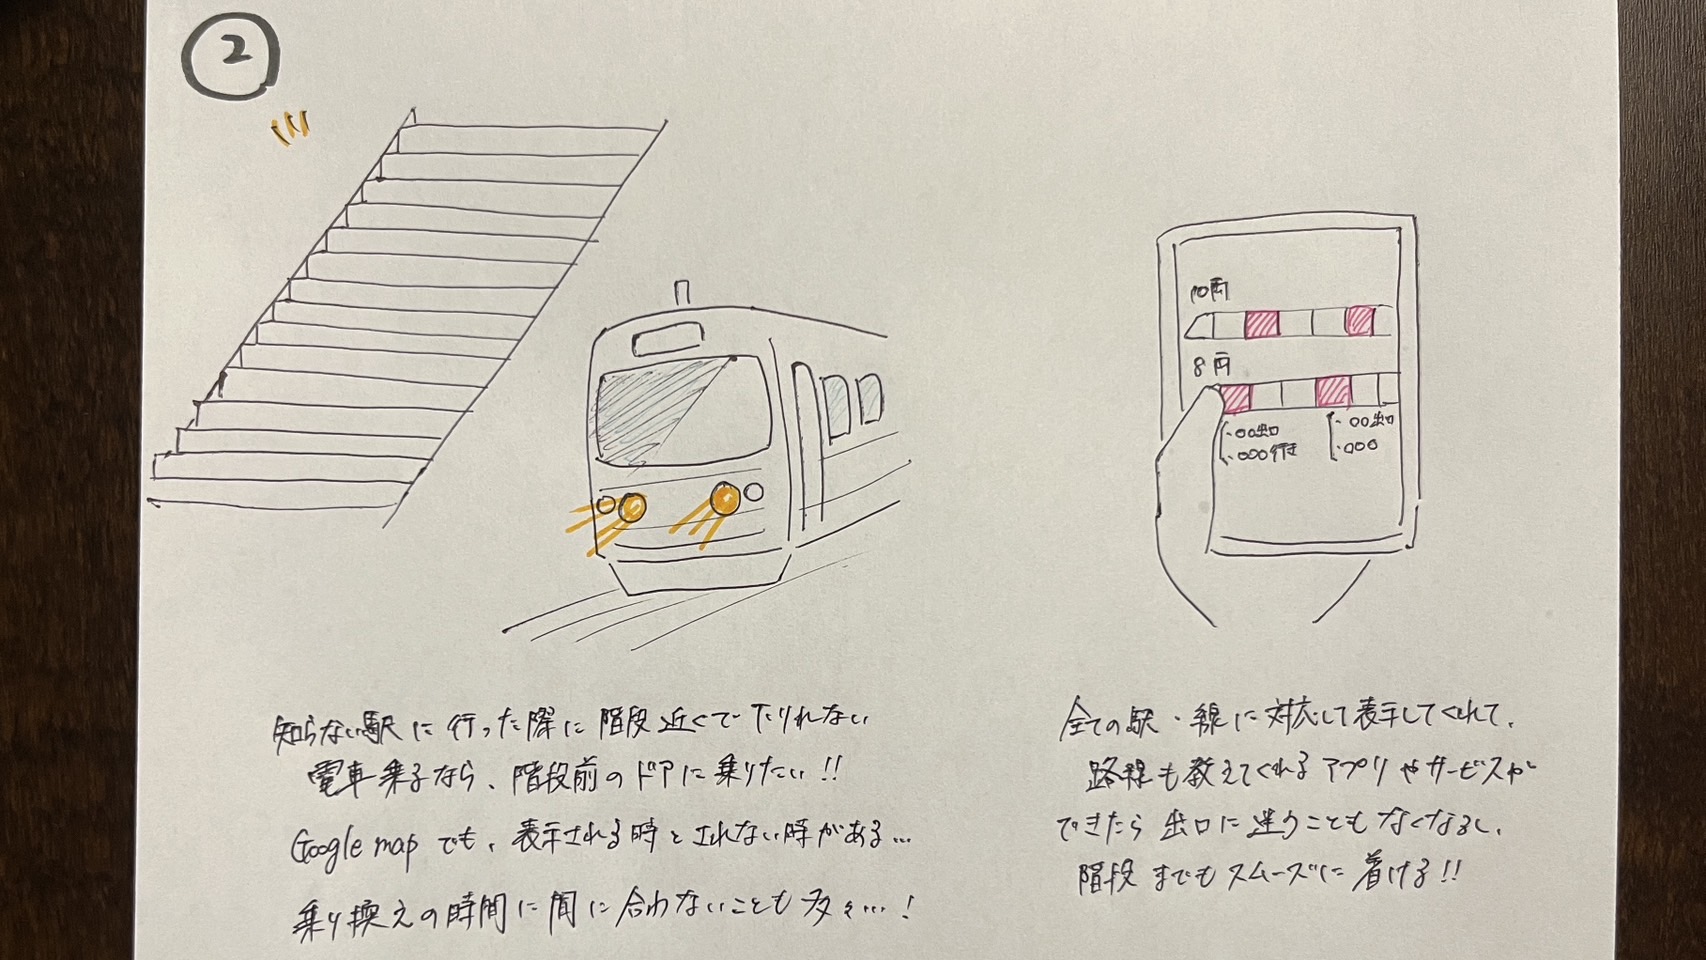 2
10両
8両
・○○出口
・○○○行き
・○○出口
・○○○
知らない駅に行った際に階段近くで下りれない
電車乗るなら、階段前のドアに乗りたい!!
Google mapでも、表示される時とされない時がある…
乗り換えの時間に間に合わないことも多々…!
全ての駅・線に対応して表示してくれて、
路線も教えてくれるアプリやサービスが
できたら出口に迷うこともなくなるし、
階段までもスムーズに着ける!!